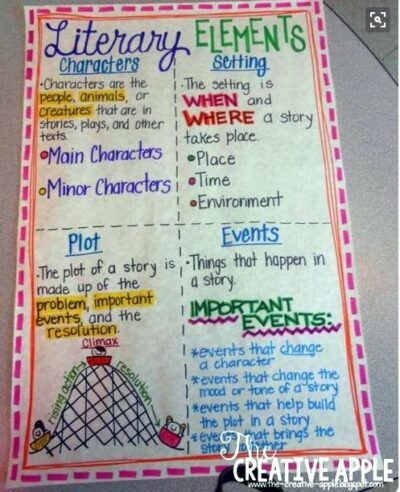 Literary ELEMENTS
Characters
•Characters are the
people, animals, or
creatures that are in
stories, plays, and other
texts.
•Main Characters
•Minor Characters
Setting
•The setting is
WHEN and
WHERE a story
takes place.
•Place
•Time
•Environment
Plot
•The plot of a story is
made up of the
problem, important
events, and the
resolution.
Climax
rising action
resolution
Events
•Things that happen in
a story.
IMPORTANT
EVENTS:
*events that change
a character
*events that change the
mood or tone of a story
*events that help build
the plot in a story
that brings the
The
CREATIVE APPLE
www.the-creative-apple.blogspot.com